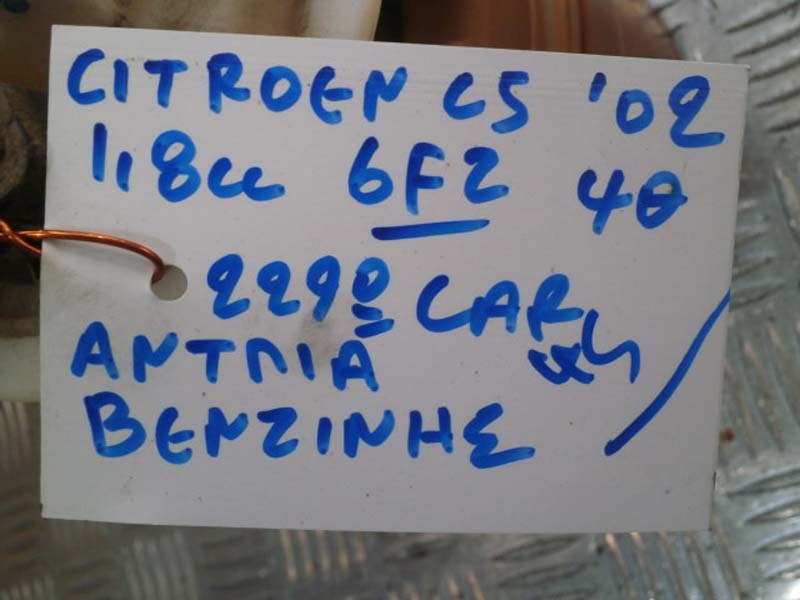 CITROEN C5 '02
1,8cc 6FZ 4θ
2290 CAR
ΑΝΤΛΙΑ
ΒΕΝΖΙΝΗΣ